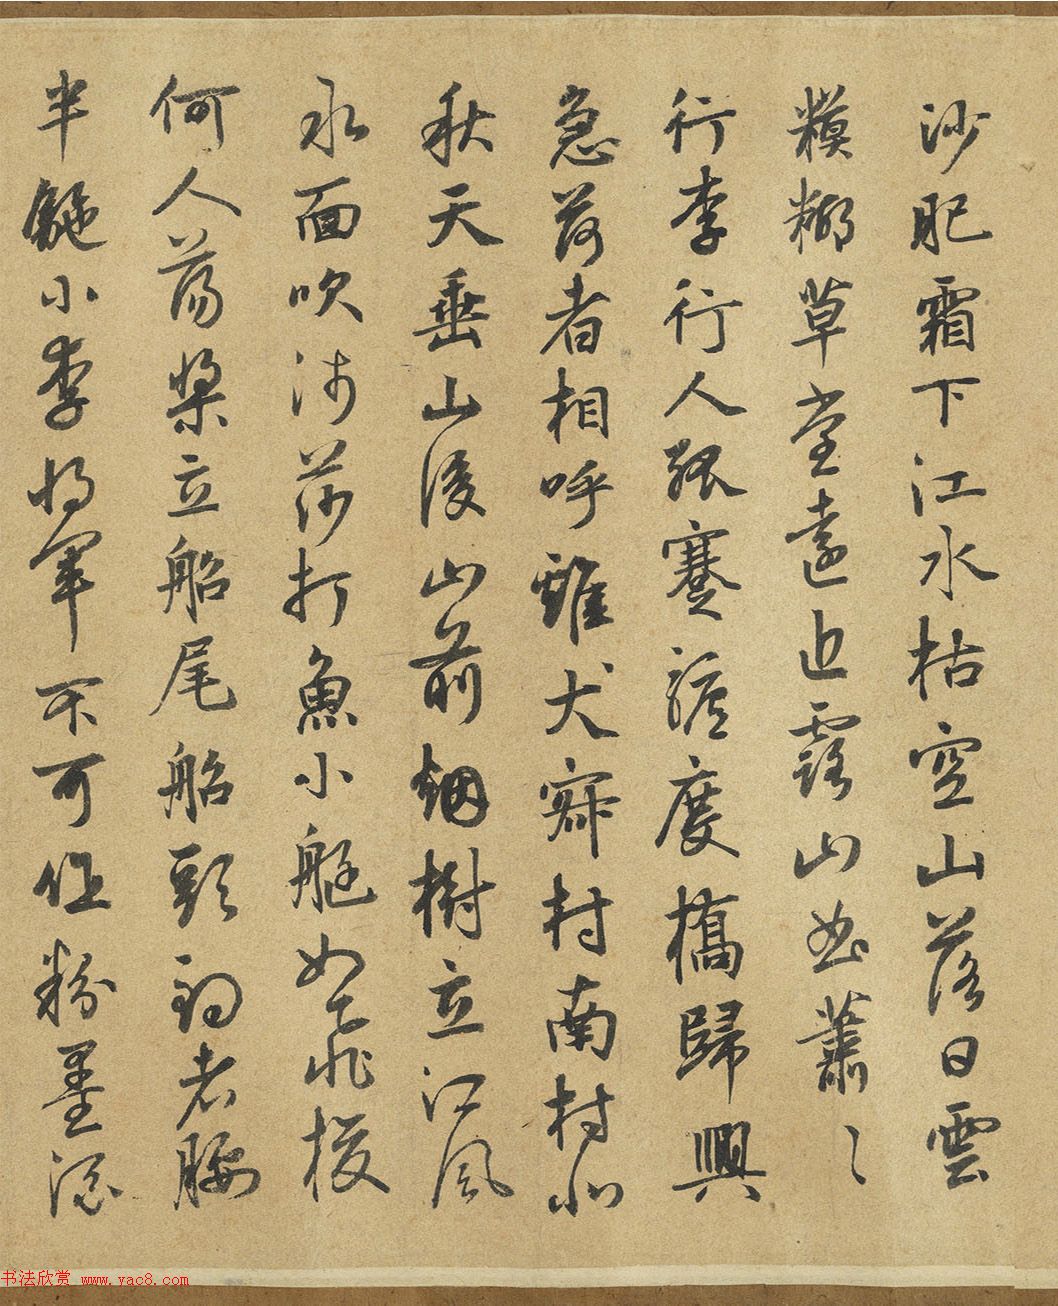 沙肥霜下江水枯空山落日雲
糢糊草堂遠近露山蕭〻
行李行人孤蹇驢度橋歸興
急荷者相呼雞犬寂村南村北
秋天垂山後山前烟樹立江風
水面吹莎打魚小艇如飛梭
何人蕩槳立船尾船頭釣老腰
半小李將軍不可作粉墨
书法欣赏 www.yac8.com